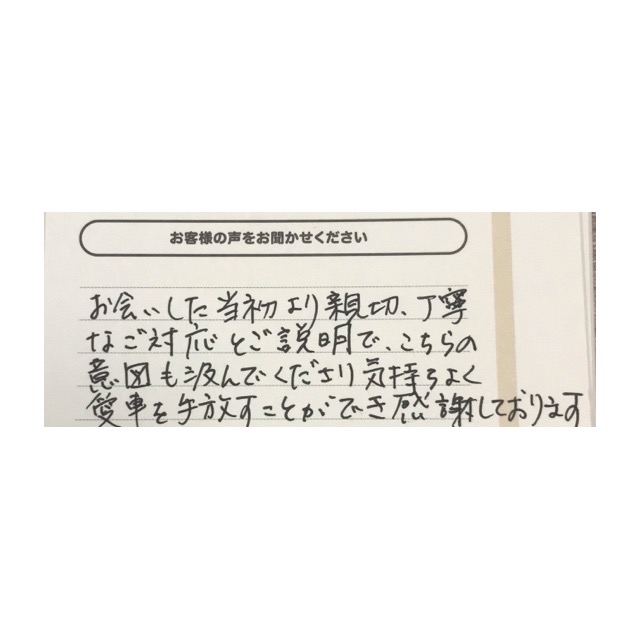 お客様の声をお聞かせください
お会いした当初より親切、丁寧
なご対応とご説明で、こちらの
意図も汲んでくださり気持ちよく
愛車を手放すことができ感謝しております